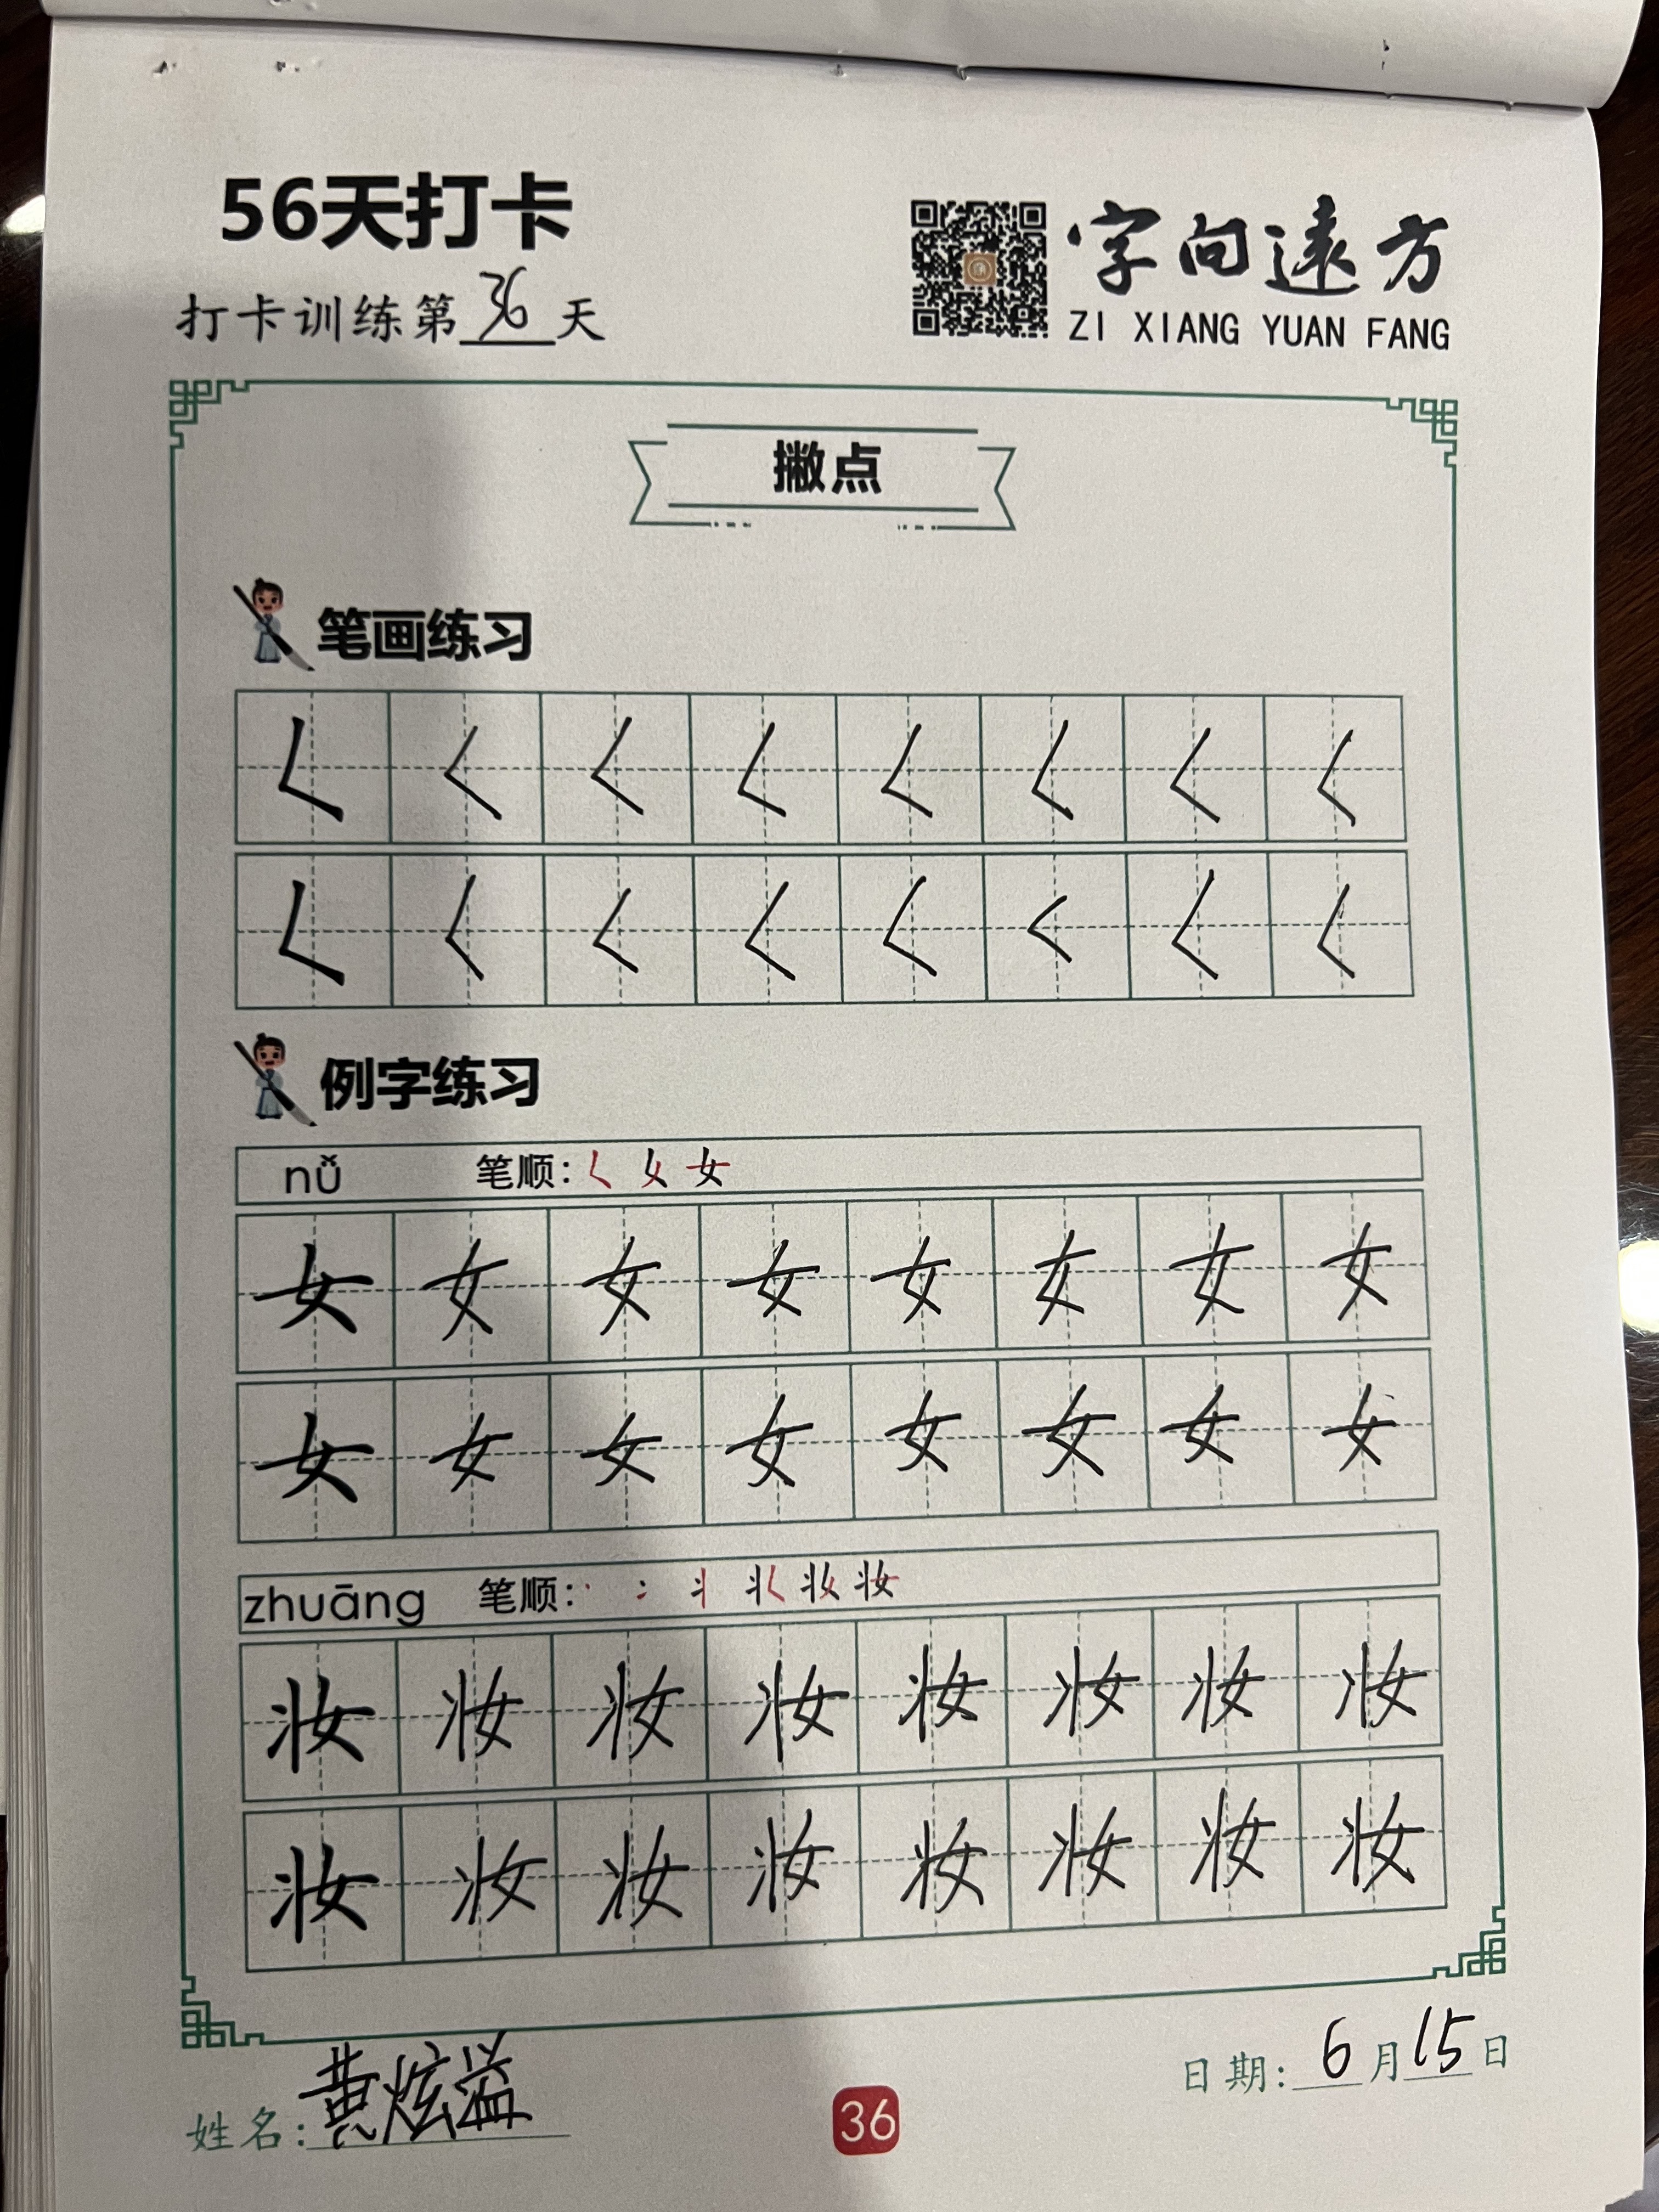 56天打卡
字向遠方
打卡训练第36天
ZI XIANG YUAN FANG
撇点
笔画练习
𡿨 𡿨 𡿨 𡿨 𡿨 𡿨 𡿨 𡿨
𡿨 𡿨 𡿨 𡿨 𡿨 𡿨 𡿨 𡿨
例字练习
nǚ 笔顺: 女
女 女 女 女 女 女 女 女
女 女 女 女 女 女 女 女
zhuāng 笔顺: 妆
妆 妆 妆 妆 妆 妆 妆 妆
妆 妆 妆 妆 妆 妆 妆 妆
姓名: 黄炫溢
36
日期: 6月15日